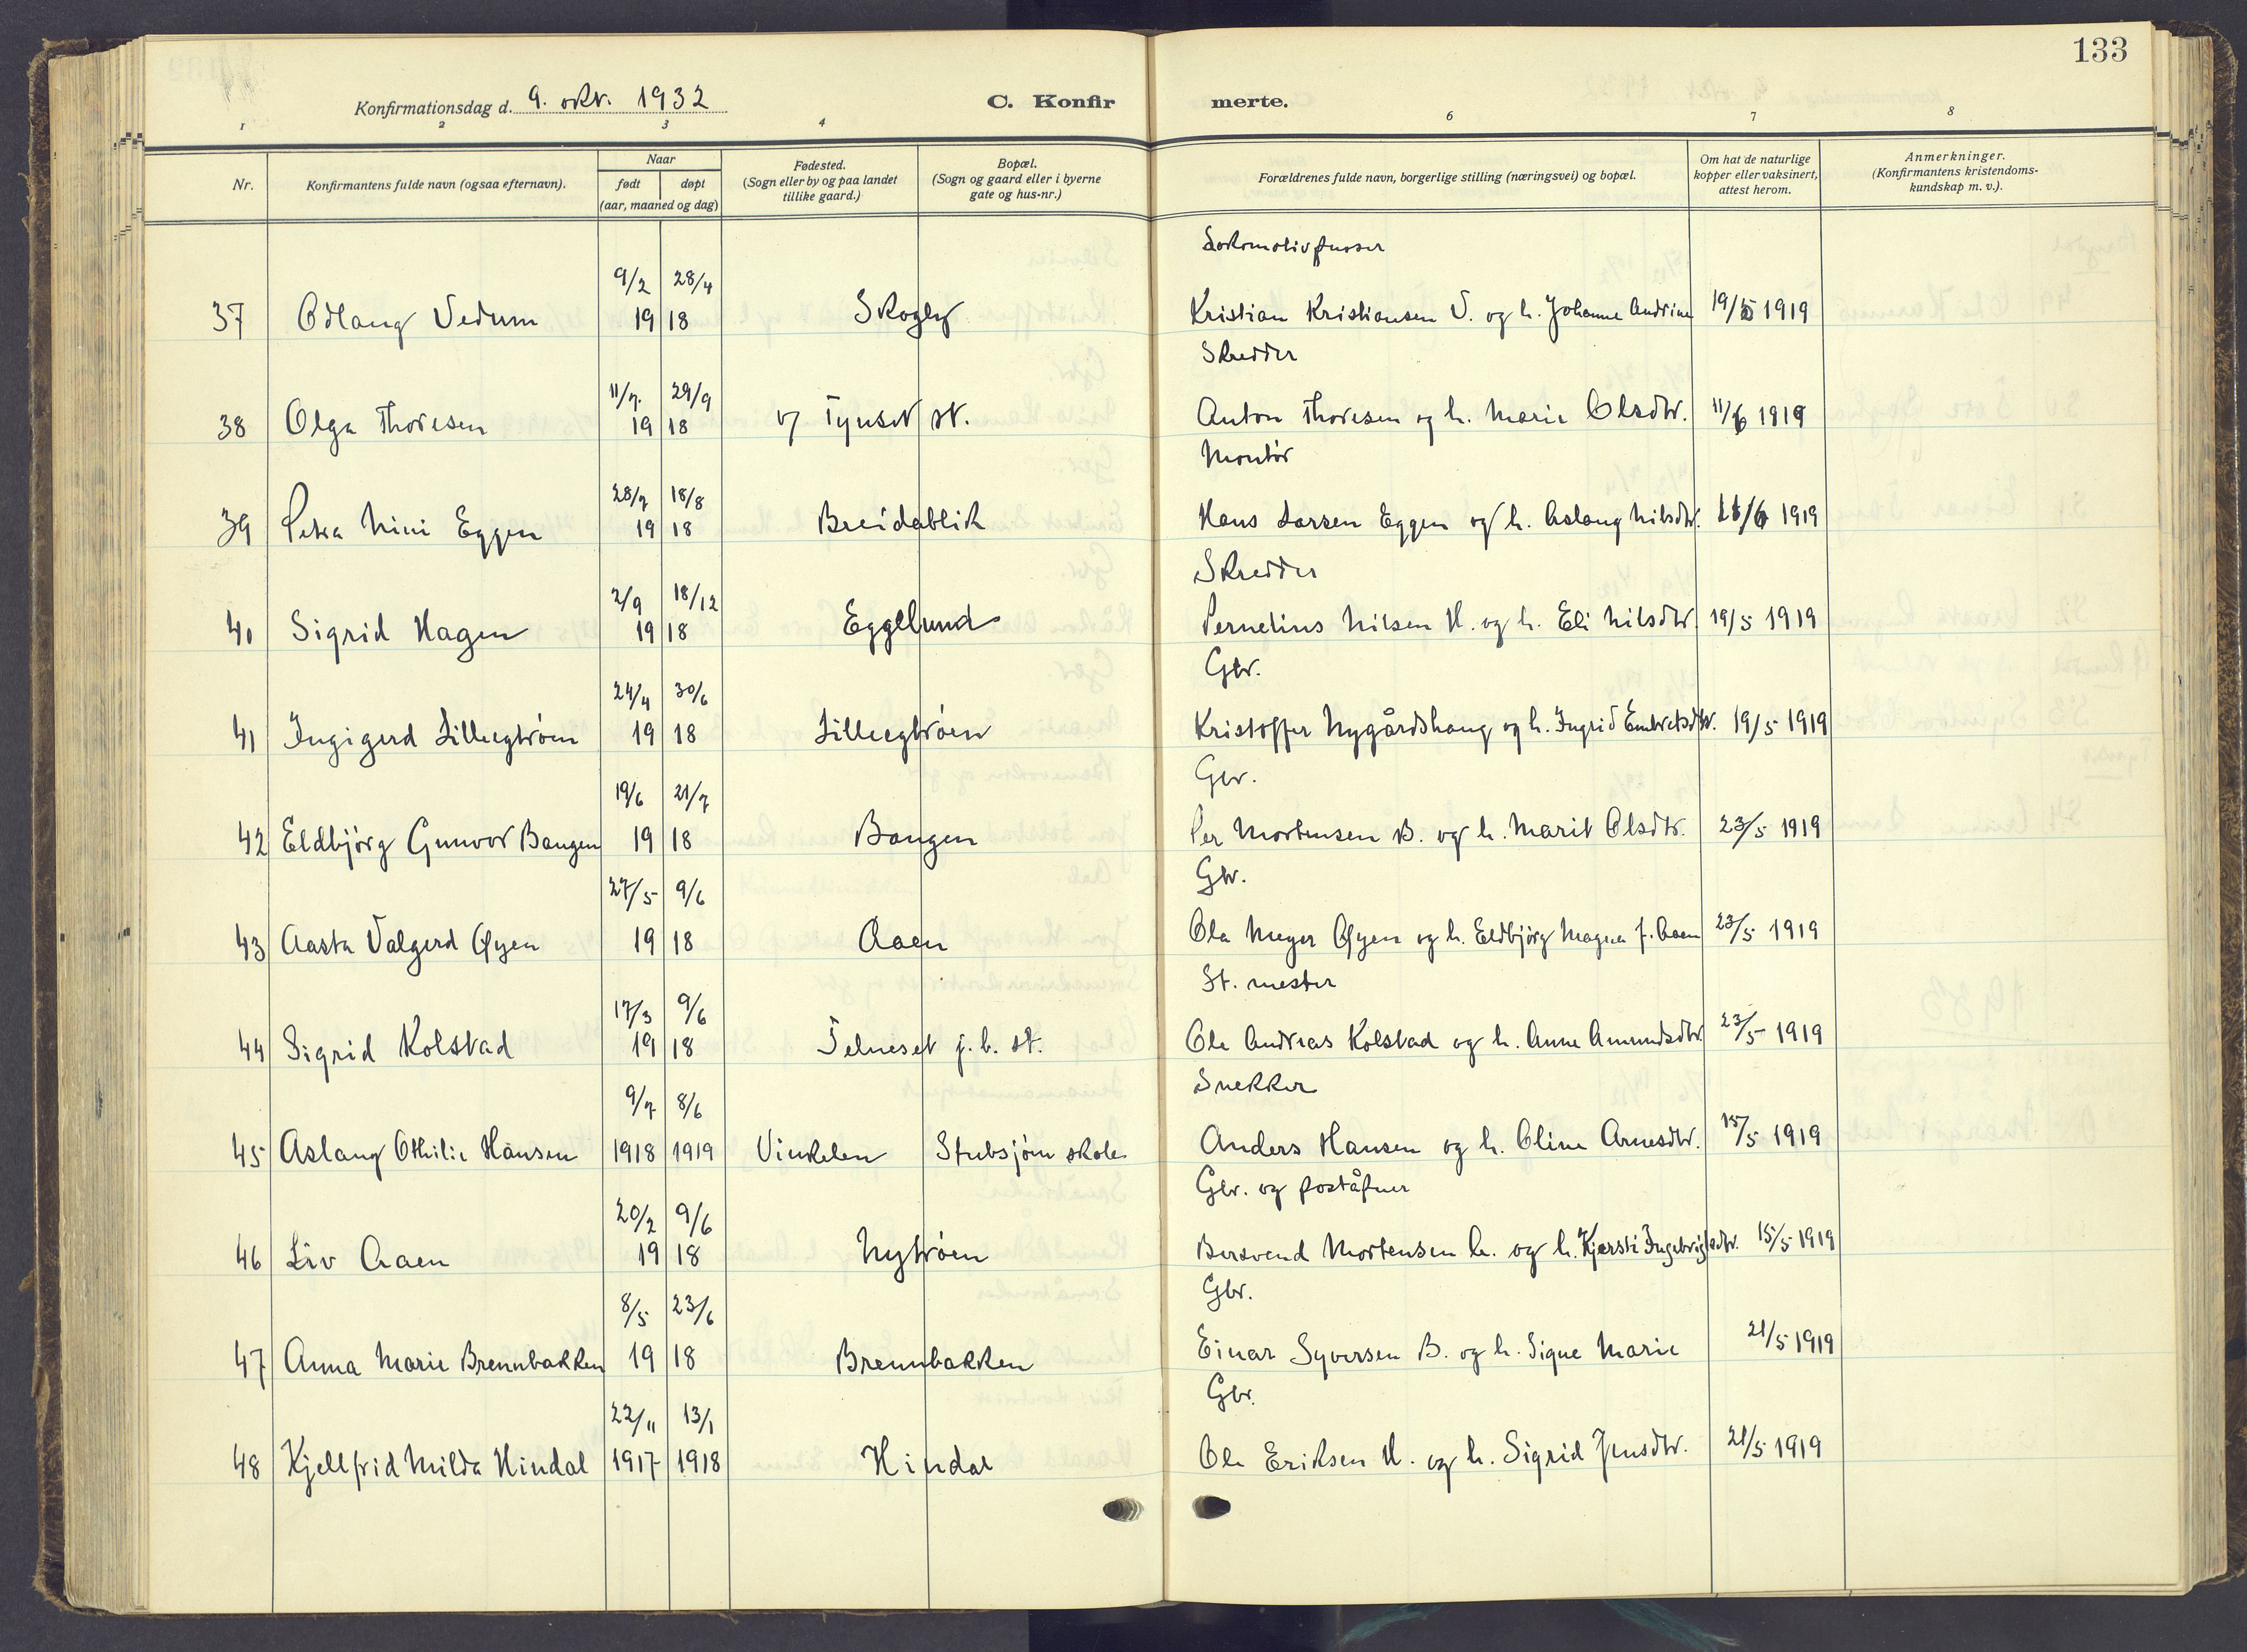 133
Konfirmationsdag d. 9. okt. 1932
C. Konfir merte.
1 2 3 4 6 7 8
Nr.
Konfirmantens fulde navn (ogsaa efternavn).
Naar
født døpt
(aar, maaned og dag)
Fødested.
(Sogn eller by og paa landet
tillike gaard.)
Bopæl.
(Sogn og gaard eller i byerne
gate og hus-nr.)
Forældrenes fulde navn, borgerlige stilling (næringsvei) og bopæl.
Om hat de naturlige
kopper eller vaksinert,
attest herom.
Anmerkninger.
(Konfirmantens kristendoms-
kundskap m. v.).
Lokomotivpusser
9/2 28/4
37 Odlaug Vedum 19 18 Skogly Kristian Kristiansen V. og h. Johanne Andrine 19/5 1919
Skredder
11/7. 29/9
38 Olga Thoresen 19 18 v/ Tynset st. Anton Thoresen og h. Marie Olsdtr. 11/6 1919
Montør
28/7 18/8
39 Petra Nini Eggen 19 18 Breidablik Hans Larsen Eggen og h. Aslaug Nilsdtr. 11/6 1919
Skredder
2/9 18/12
40 Sigrid Hagen 19 18 Egglund Pernelius Nilsen H. og h. Eli Nilsdtr. 19/5 1919
Gbr.
24/4 30/6
41 Ingigerd Lilleegtrøen 19 18 Lilleegtrøen Kristoffer Nygårdshaug og h. Ingrid Embretsdtr. 19/5 1919
Gbr.
19/6 21/7
42 Eldbjörg Gunvor Bangen 19 18 Bangen Per Mortensen B. og h. Marit Olsdtr. 23/5 1919
Gbr.
27/5 9/6
43 Aasta Valgerd Øyen 19 18 Aaen Ola Meyer Øyen og h. Eldbjörg Magna f. Aaen 23/5 1919
St. mester
17/3 9/6
44 Sigrid Kolstad 19 18 Telneset j. b. st. Ole Andreas Kolstad og h. Anne Amundsdtr. 23/5 1919
Snekker
9/7 8/6
45 Aslaug Othilie Hansen 1918 1919 Vinkelen Stubsjøen skole Anders Hansen og h. Oline Arnesdtr. 15/5 1919
Gbr. og poståpner
20/2 9/6
46 Liv Aaen 19 18 Nytrøen Bersvend Mortensen A. og h. Kjersti Ingebrigtsdtr. 15/5 1919
Gbr.
8/5 23/6
47 Anna Marie Brennbakken 19 18 Brennbakken Einar Syversen B. og h. Signe Marie 21/5 1919
Gbr.
22/11 13/1
48 Kjellfrid Milda Hindal 1917 1918 Hindal Ole Eriksen H. og h. Sigrid Jensdtr. 21/5 1919